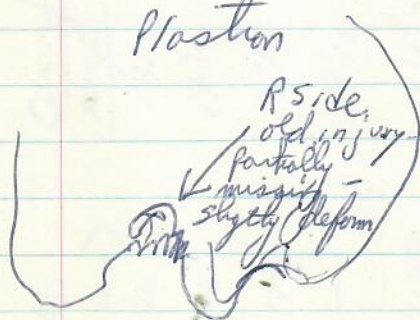 Plastron
R side,
old injury
partially
missing -
slightly deform